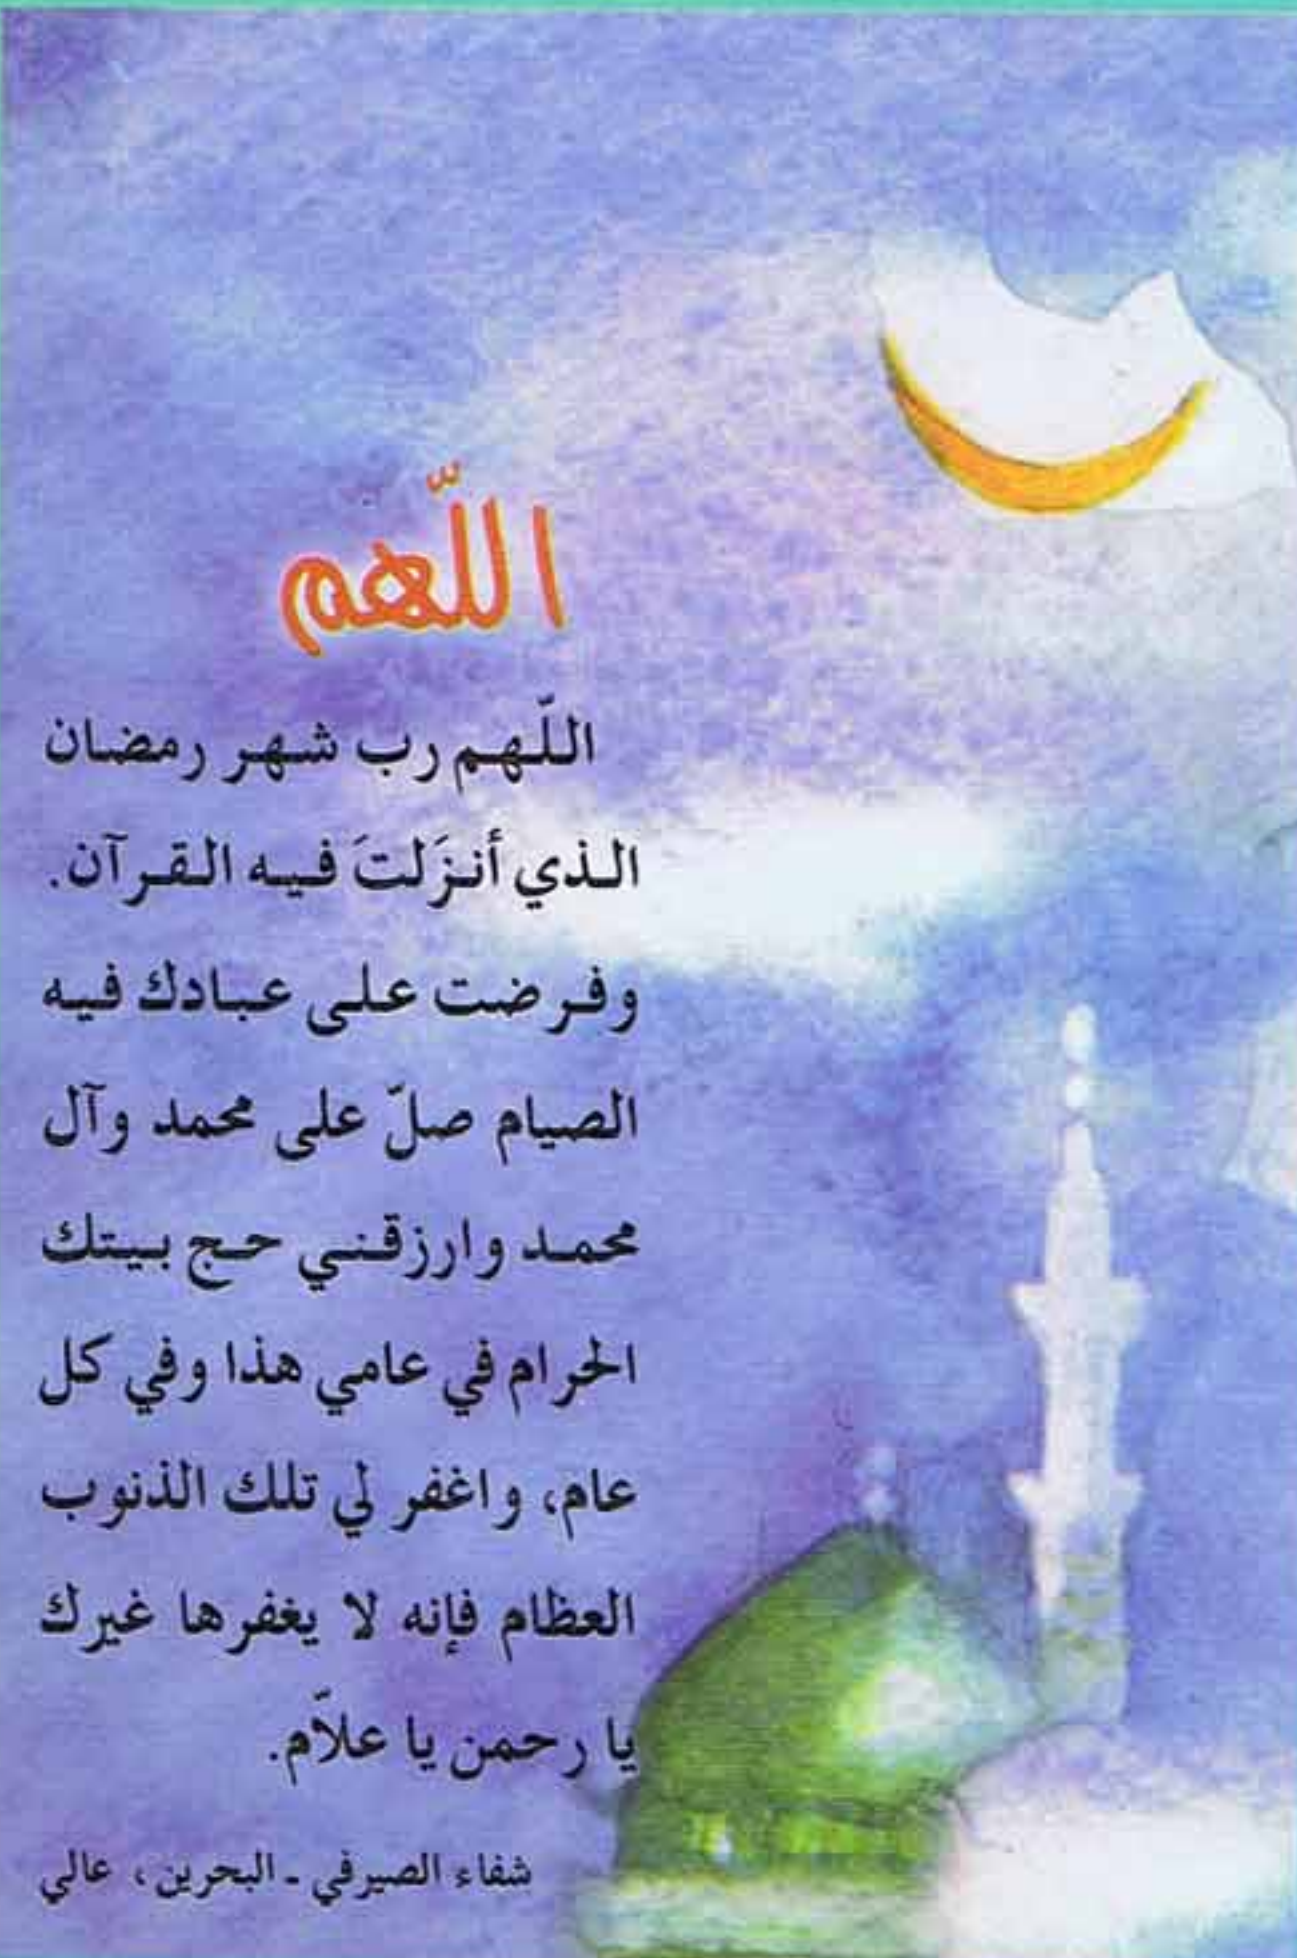 اللّهم
اللّهم رب شهر رمضان
الذي أنزَلتَ فيه القرآن.
وفرضت على عبادك فيه
الصيام صلّ على محمد وآل
محمد وارزقني حج بيتك
الحرام في عامي هذا وفي كل
عام، واغفر لي تلك الذنوب
العظام فإنه لا يغفرها غيرك
يا رحمن يا علاّم.
شفاء الصيرفي - البحرين، عالي